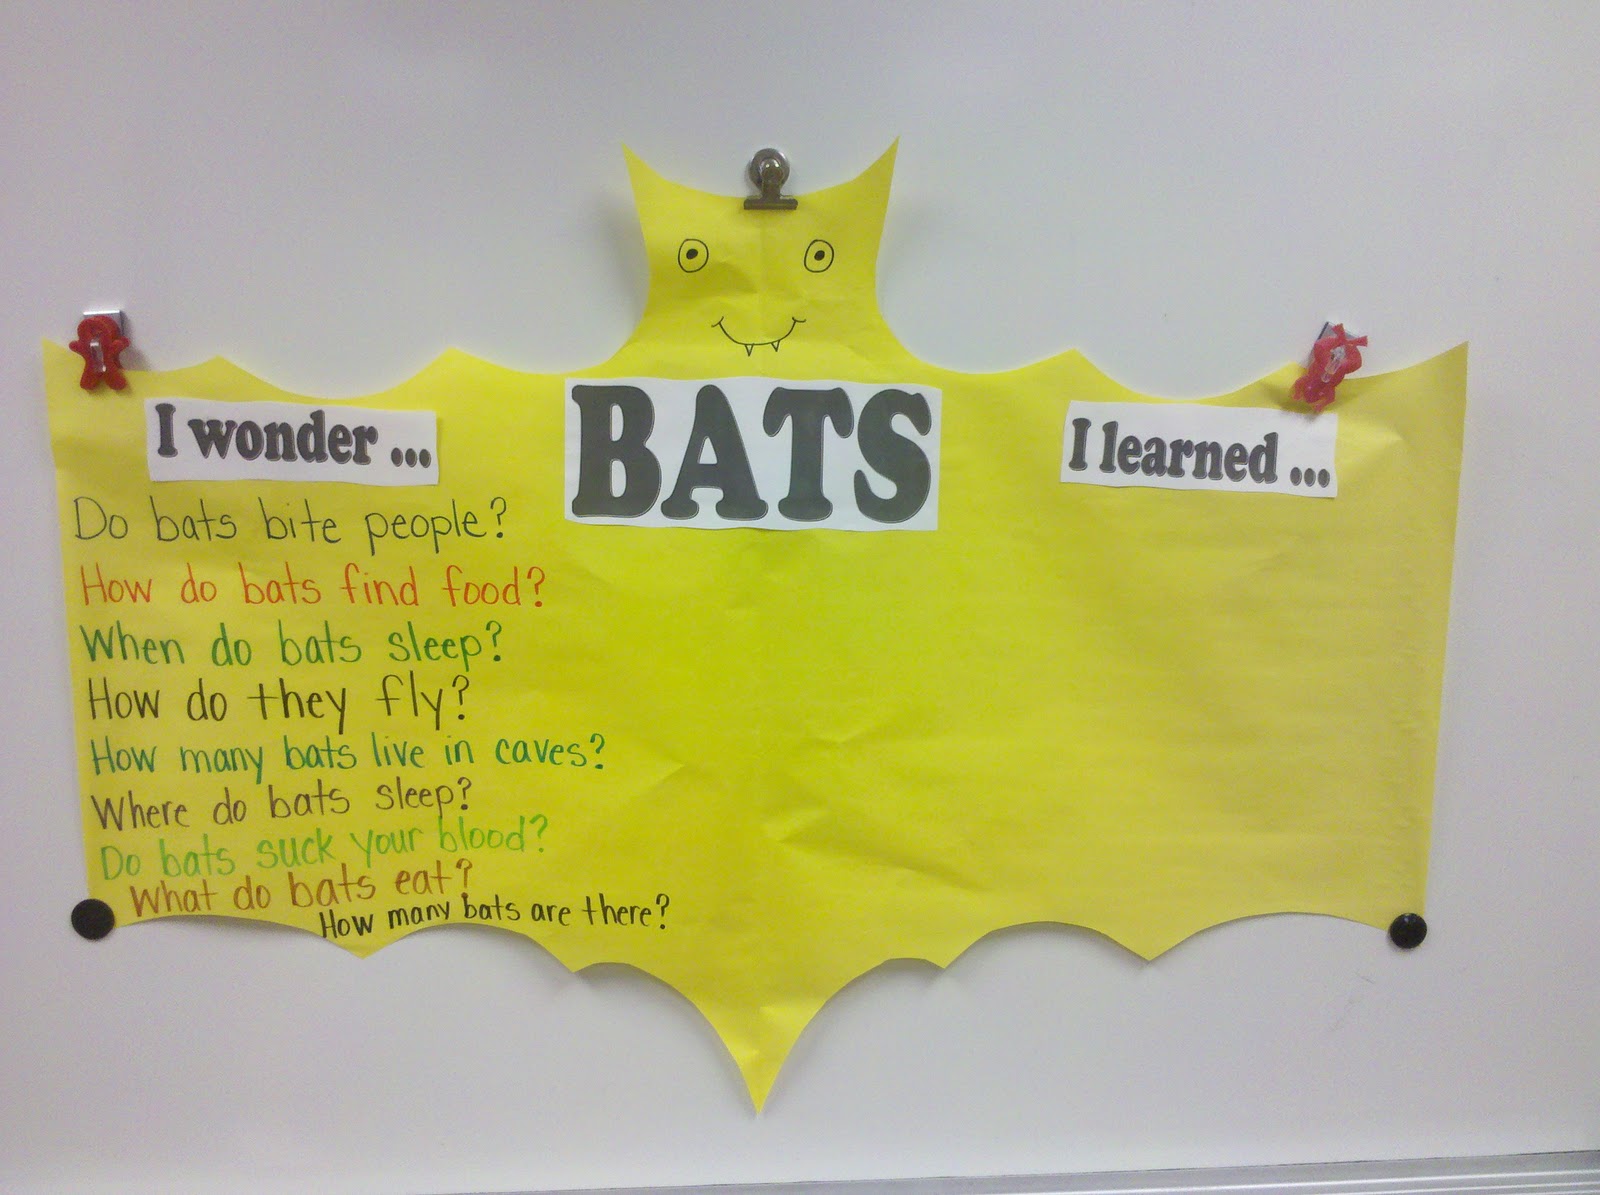 BATS
I wonder ...
Do bats bite people?
How do bats find food?
When do bats sleep?
How do they fly?
How many bats live in caves?
Where do bats sleep?
Do bats suck your blood?
What do bats eat?
How many bats are there?
I learned ...